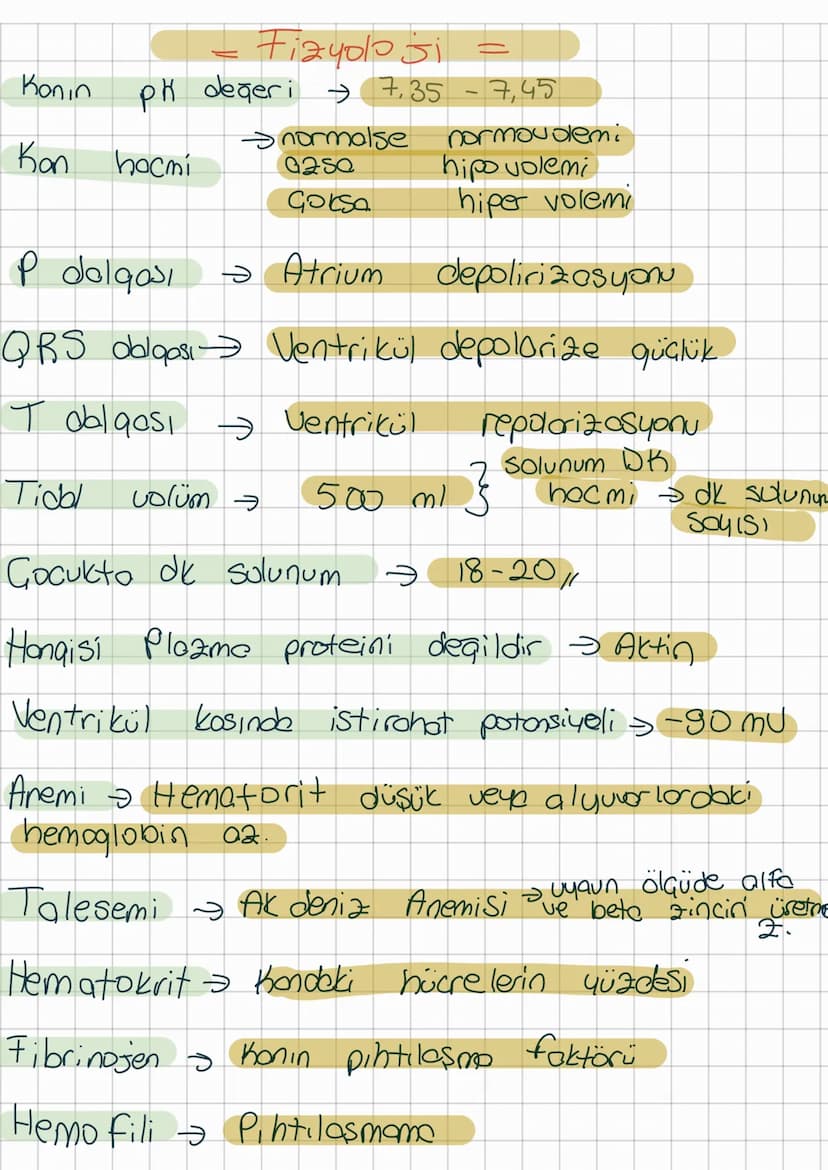 = Fizyoloji =
Kanın pH değeri → 7.35 - 7,45
Kan hacmi → normalse normovolemi
azsa hipovolemi
Çoksa hiper volemi
P dalgası → Atrium depolirizasyonu
QRS dalgası → Ventrikül depolarize güçlük
T dalgası → Ventrikül repolarizasyonu
Tidal volüm → 500 ml } solunum DK
hacmi → dk solunum
sayısı
Çocukta dk solunum → 18-20 //
Hangisi Plazma proteini değildir → Aktin
Ventrikül kasında istirahat potansiyeli → -90 mV
Anemi → Hematorit düşük veya alyuvarlardaki
hemoglobin az.
Talesemi → Ak deniz Anemisi → uygun ölçüde alfa
ve beta zinciri üretme
z.
Hematokrit → Kandaki hücrelerin yüzdesi
Fibrinojen → Kanın pıhtılaşma faktörü
Hemofili → Pıhtılaşmama